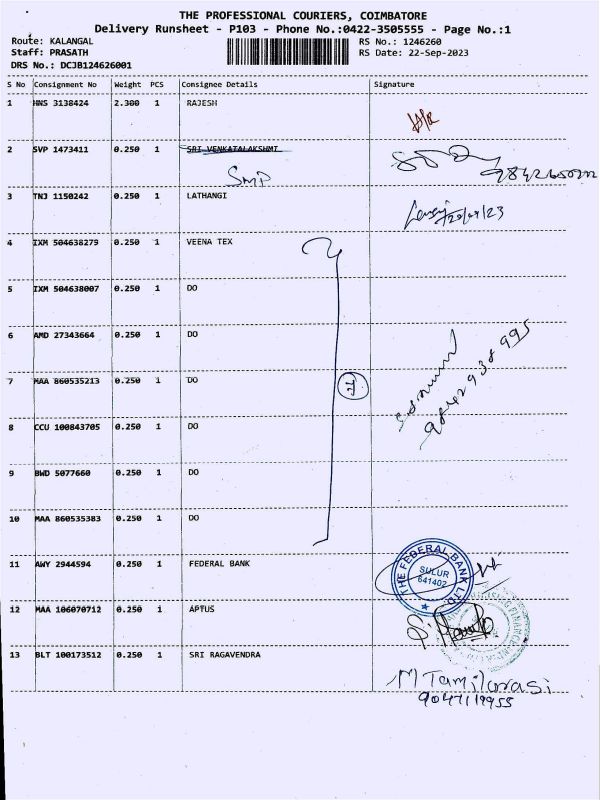 THE PROFESSIONAL COURIERS, COIMBATORE
Delivery Runsheet - P103 - Phone No.:0422-3505555 - Page No.:1
Route: KALANGAL RS No.: 1246260
Staff: PRASATH RS Date: 22-Sep-2023
DRS No.: DCJB124626001
S No Consignment No Weight PCS Consignee Details Signature
1 HNS 3138424 2.300 1 RAJESH
2 SVP 1473411 0.250 1 SRI VENKATALAKSHMI
SMP
3 TNJ 1150242 0.250 1 LATHANGI
4 IXM 504638279 0.250 1 VEENA TEX
5 IXM 504638007 0.250 1 DO
6 AMD 27343664 0.250 1 DO
7 MAA 860535213 0.250 1 DO
8 CCU 100843705 0.250 1 DO
9 BWD 5077660 0.250 1 DO
10 MAA 860535383 0.250 1 DO
11 AWY 2944594 0.250 1 FEDERAL BANK
THE FEDERAL BANK LTD.
SULUR
641402
12 MAA 106070712 0.250 1 APTUS
13 BLT 100173512 0.250 1 SRI RAGAVENDRA
M Tamilarasi
9047119955